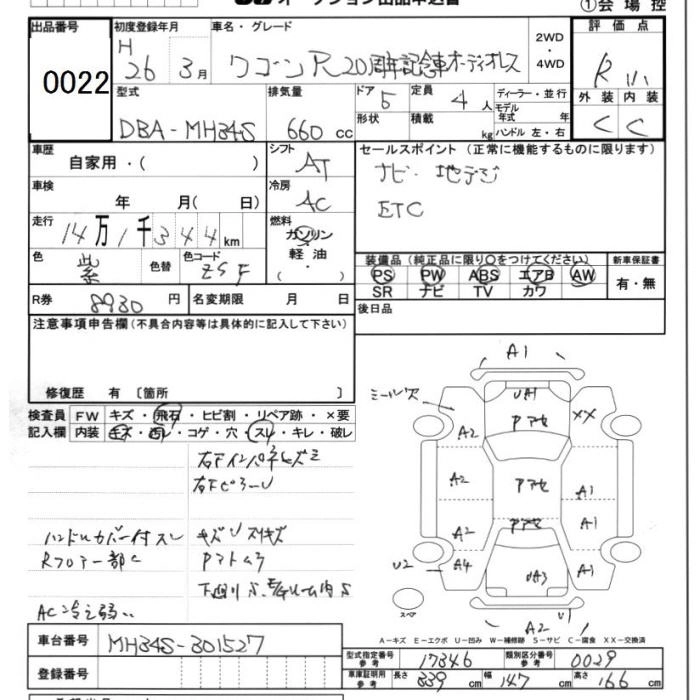 オークション出品申込書
①会場控
出品番号
0022
初度登録年月
H
26 3月
車名・グレード
ワゴンR 20周年記念車 オーディオレス
2WD
・
4WD
評価点
R
外装 内装
C C
型式
DBA-MH34S
排気量
660 cc
ドア 5
形状
定員 4 人
積載 kg
ディーラー・並行
モデル
年式 年
ハンドル 左・右
車歴
自家用・( )
シフト
AT
車検
年 月( 日)
冷房
AC
走行
14万1千344km
燃料
ガソリン
軽油
( ・ )
色
紫
色替
色コード
ZSF
R券
8930 円
名変期限 月 日
セールスポイント(正常に機能するものに限ります)
ナビ・地デジ
ETC
装備品(純正品に限り○をつけてください)
PS PW ABS エアB AW
SR ナビ TV カワ
新車保証書
有・無
後日品
注意事項申告欄(不具合内容等は具体的に記入して下さい)
修復歴 有〔箇所 〕
検査員
記入欄
FW キズ・飛石・ヒビ割・リペア跡・×要
内装 キズ・汚レ・コゲ・穴・スレ・キレ・破レ
右Fインパネヒズミ
右FピラーU
ハンドルカバー付スレ
キズUスリキズ
Rフロアー部C
下廻りS
AC冷え弱い
A1
ミール欠
UA1
Pアセ
XX
A2
A2
Pアセ
A1
A2
Pアセ
A1
U2
A4
UA3
A1
スペアー
A2
U1
A-キズ E-エクボ U-凹み W-補修跡 S-サビ C-腐食 XX-交換済
車台番号
MH34S-301527
登録番号
型式指定番号
参考
17346
類別区分番号
参考
0029
車庫証明用
参考
長さ 339 cm
幅 147 cm
高さ 166 cm